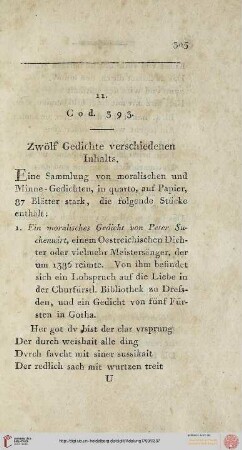 305
11.
Cod. 393.
Zwölf Gedichte verschiedenen
Inhalts.
Eine Sammlung von moralischen und
Minne-Gedichten, in quarto, auf Papier,
87 Blätter stark, die folgende Stücke
enthält:
1. Ein moralisches Gedicht von Peter Su-
chenwirt, einem Oestreichischen Dich-
ter oder vielmehr Meistersänger, der
um 1386 reimte. Von ihm befindet
sich ein Lobspruch auf die Liebe in
der Churfürstl. Bibliothek zu Dres-
den, und ein Gedicht von fünf Für-
sten in Gotha.
Her got dv bist der clar vrsprung
Der durch weishait alle ding
Dvrch favcht mit siner sussikait
Der redlich sach mit wurtzen treit
U